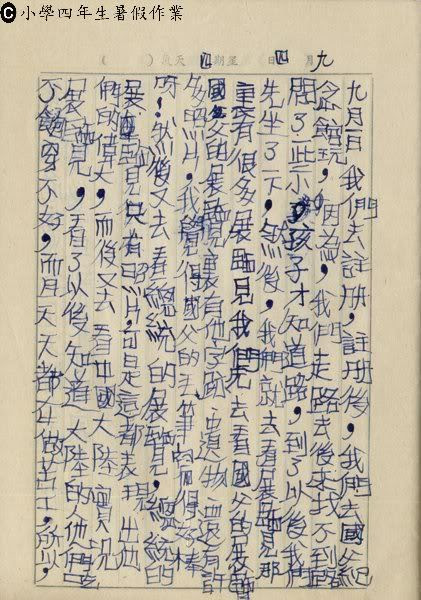 C小學四年生暑假作業
九月四日 星期四 天氣( )
九月一我們去註册,註册後,我們去國父紀
念館玩,因為,我們走路去後來找不到路
問了一些小孩子才知道路,到了以後我們
先坐了下,然後,我們就去看展覽那
裏有很多展覽我們先去看國父的展覽
國父的展覽裏有他字跡遺物還有許
多照片,我覺得國父的毛筆寫得好棒
呀!然後又去看總統的展覽,總統的
展覽只有照片,可是這都表現出他
們的偉大,而後又去看中國大陸況
展覽,看了以後知道大陸的人他們吃
不飽穿不好,而且天天都在做苦工,所以,